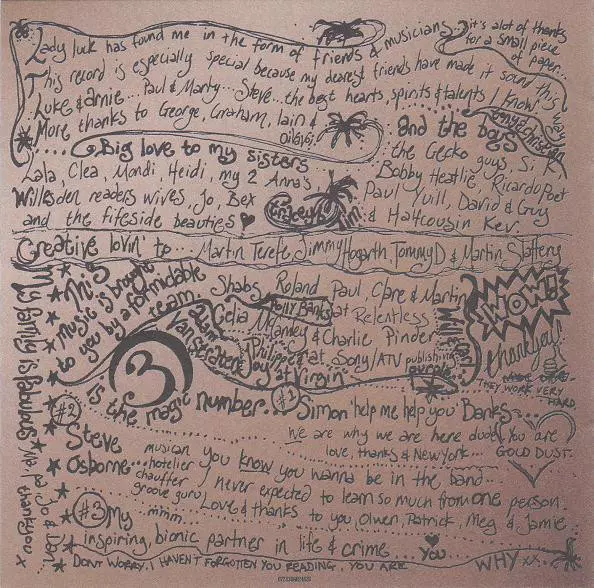 Lady luck has found me in the form of friends & musicians...
it's alot of thanks
for a small piece
of paper...
This record is especially special because my dearest friends have made it sound this way
Luke & arnie... Paul & Marty... Steve... the best hearts, spirits & talents I know
More thanks to George, Graham, Iain &
and the boys
Big love to my sisters
the Gecko guys, Si, K
Lala, Clea, Mondi, Heidi, my 2 Anna's,
Bobby Heatlie, Ricardo Poet
Willesden readers wives, Jo, Bex
Paul Yuill, David & Guy
and the fifeside beauties
& Halfcousin Kev.
Creative lovin' to... Martin Terefe, Jimmy Hogarth, Tommy D & Martin Slattery
My family is fabulous
Ma, pa, Jo & Dan
thankyou x
This
music is brought
to you by a formidable
team
Shabs, Roland, Paul, Clare & Martin
Polly Banks at Relentless
Celia McCamley & Charlie Pinder
at Sony/ATV publishing
at Virgin
WOW!
thankyou!
THEY WORK VERY
HARD
3
is the magic number...
#1
Simon 'help me help you' Banks...
We are why we are here dude
love, thanks & New York...
You are
GOLD DUST.
#2
Steve
Osborne...
musician
hotelier
chauffer
groove guru
mmm...
you know you wanna be in the band...
I never expected to learn so much from one person
Love & thanks to you, Olwen, Patrick, Meg & Jamie
#3 My
inspiring, bionic partner in life & crime...
You
DONT WORRY. I HAVENT FORGOTTEN YOU READING, YOU ARE
WHY xx